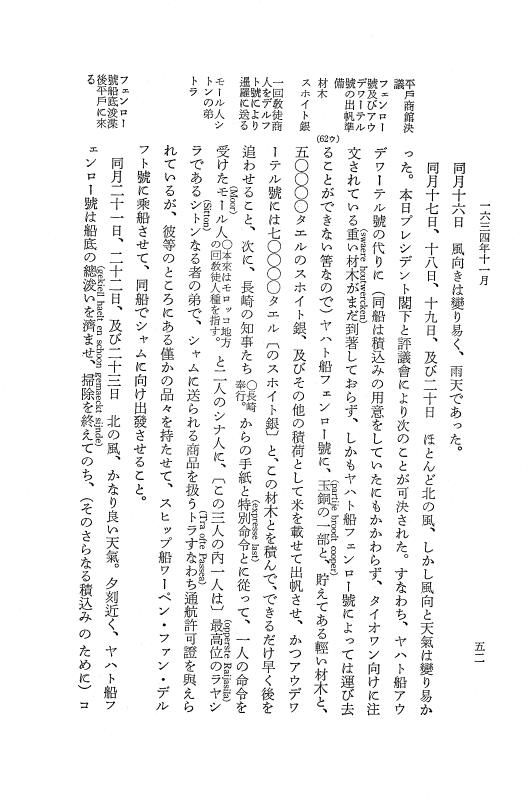 一六三四年十一月
五二二
平戸商館決
議
フェンロー
號及びアウ
デワーテル
號の出帆準
備
材木
スホイト銀
一回教徒商
人をデルフ
ト號により
暹羅に送る
モール人シ
トンの弟
トラ
フェンロー
號船底浚渫
後平戸に來
る
同月十六日　風向きは變り易く、雨天であった。
同月十七日、十八日、十九日、及び二十日　ほとんど北の風、しかし風向と天氣は變り易か
った。本日プレシデント閣下と評議會により次のことが可決された。すなわち、ヤハト船アウ
デワーテル號の代りに（同船は積込みの用意をしていたにもかかわらず、タイオワン向けに注
文されている重い材木がまだ到著しておらず、しかもヤハト船フェンロー號によっては運び去
(swaere houtwercken)
(62ウ)
ることができない筈なので）ヤハト船フェンロー號に、玉銅の一部と、貯えてある輕い材木と、
(partije broodt cooper)
五〇〇〇〇タエルのスホイト銀、及びその他の積荷として米を載せて出帆させ、かつアウデワ
ーテル號には七〇〇〇〇タエル〔のスホイト銀〕と、この材木とを積んで、できるだけ早く後を
追わせること、次に、長崎の知事たち〇長崎奉行。からの手紙と特別命令とに從って、一人の命令を
(expresse last)
受けたモール人〇本來はモロッコ地方の回教徒人種を指す。と二人のシナ人に、〔この三人の內一人は〕最高位のラヤシ
(Moor)
(opperste Raijasila)
ラであるシトンなる者の弟で、シャムに送られる商品を扱うトラすなわち通航許可證を與えら
(Sitton)
(Tra ofte Passea)
れているが、彼等のところにある僅かの品々を持たせて、スヒップ船ワーペン・ファン・デル
フト號に乘船させて、同船でシャムに向け出發させること。
同月二十一日、二十二日、及び二十三日　北の風、かなり良い天氣。夕刻近く、ヤハト船フ
ェンロー號は船底の總浚いを濟ませ、掃除を終えてのち、（そのさらなる積込みのために）コ
(gekielt haeft en schoon gemaeckt sijnde)